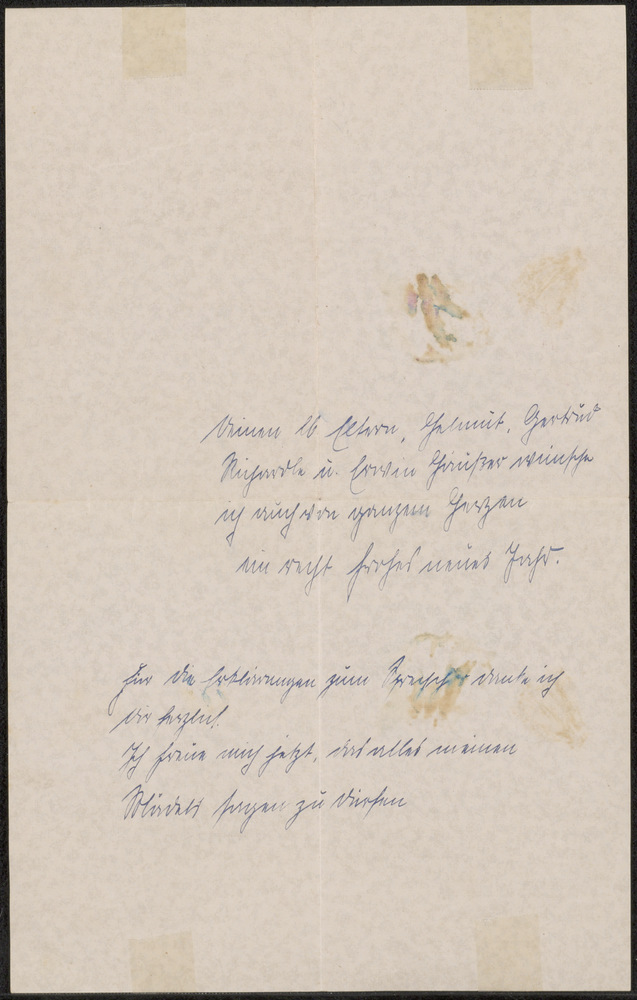 Deinen lb Eltern, Helmut, Gertrud
Richardle u. Erwin Häußer wünsche
ich auch von ganzem Herzen
ein recht frohes neues Jahr.
Für die Erklärungen zum danke ich
dir herzlich.
Ich freue mich jetzt, das alles meinen
Mädels sagen zu dürfen